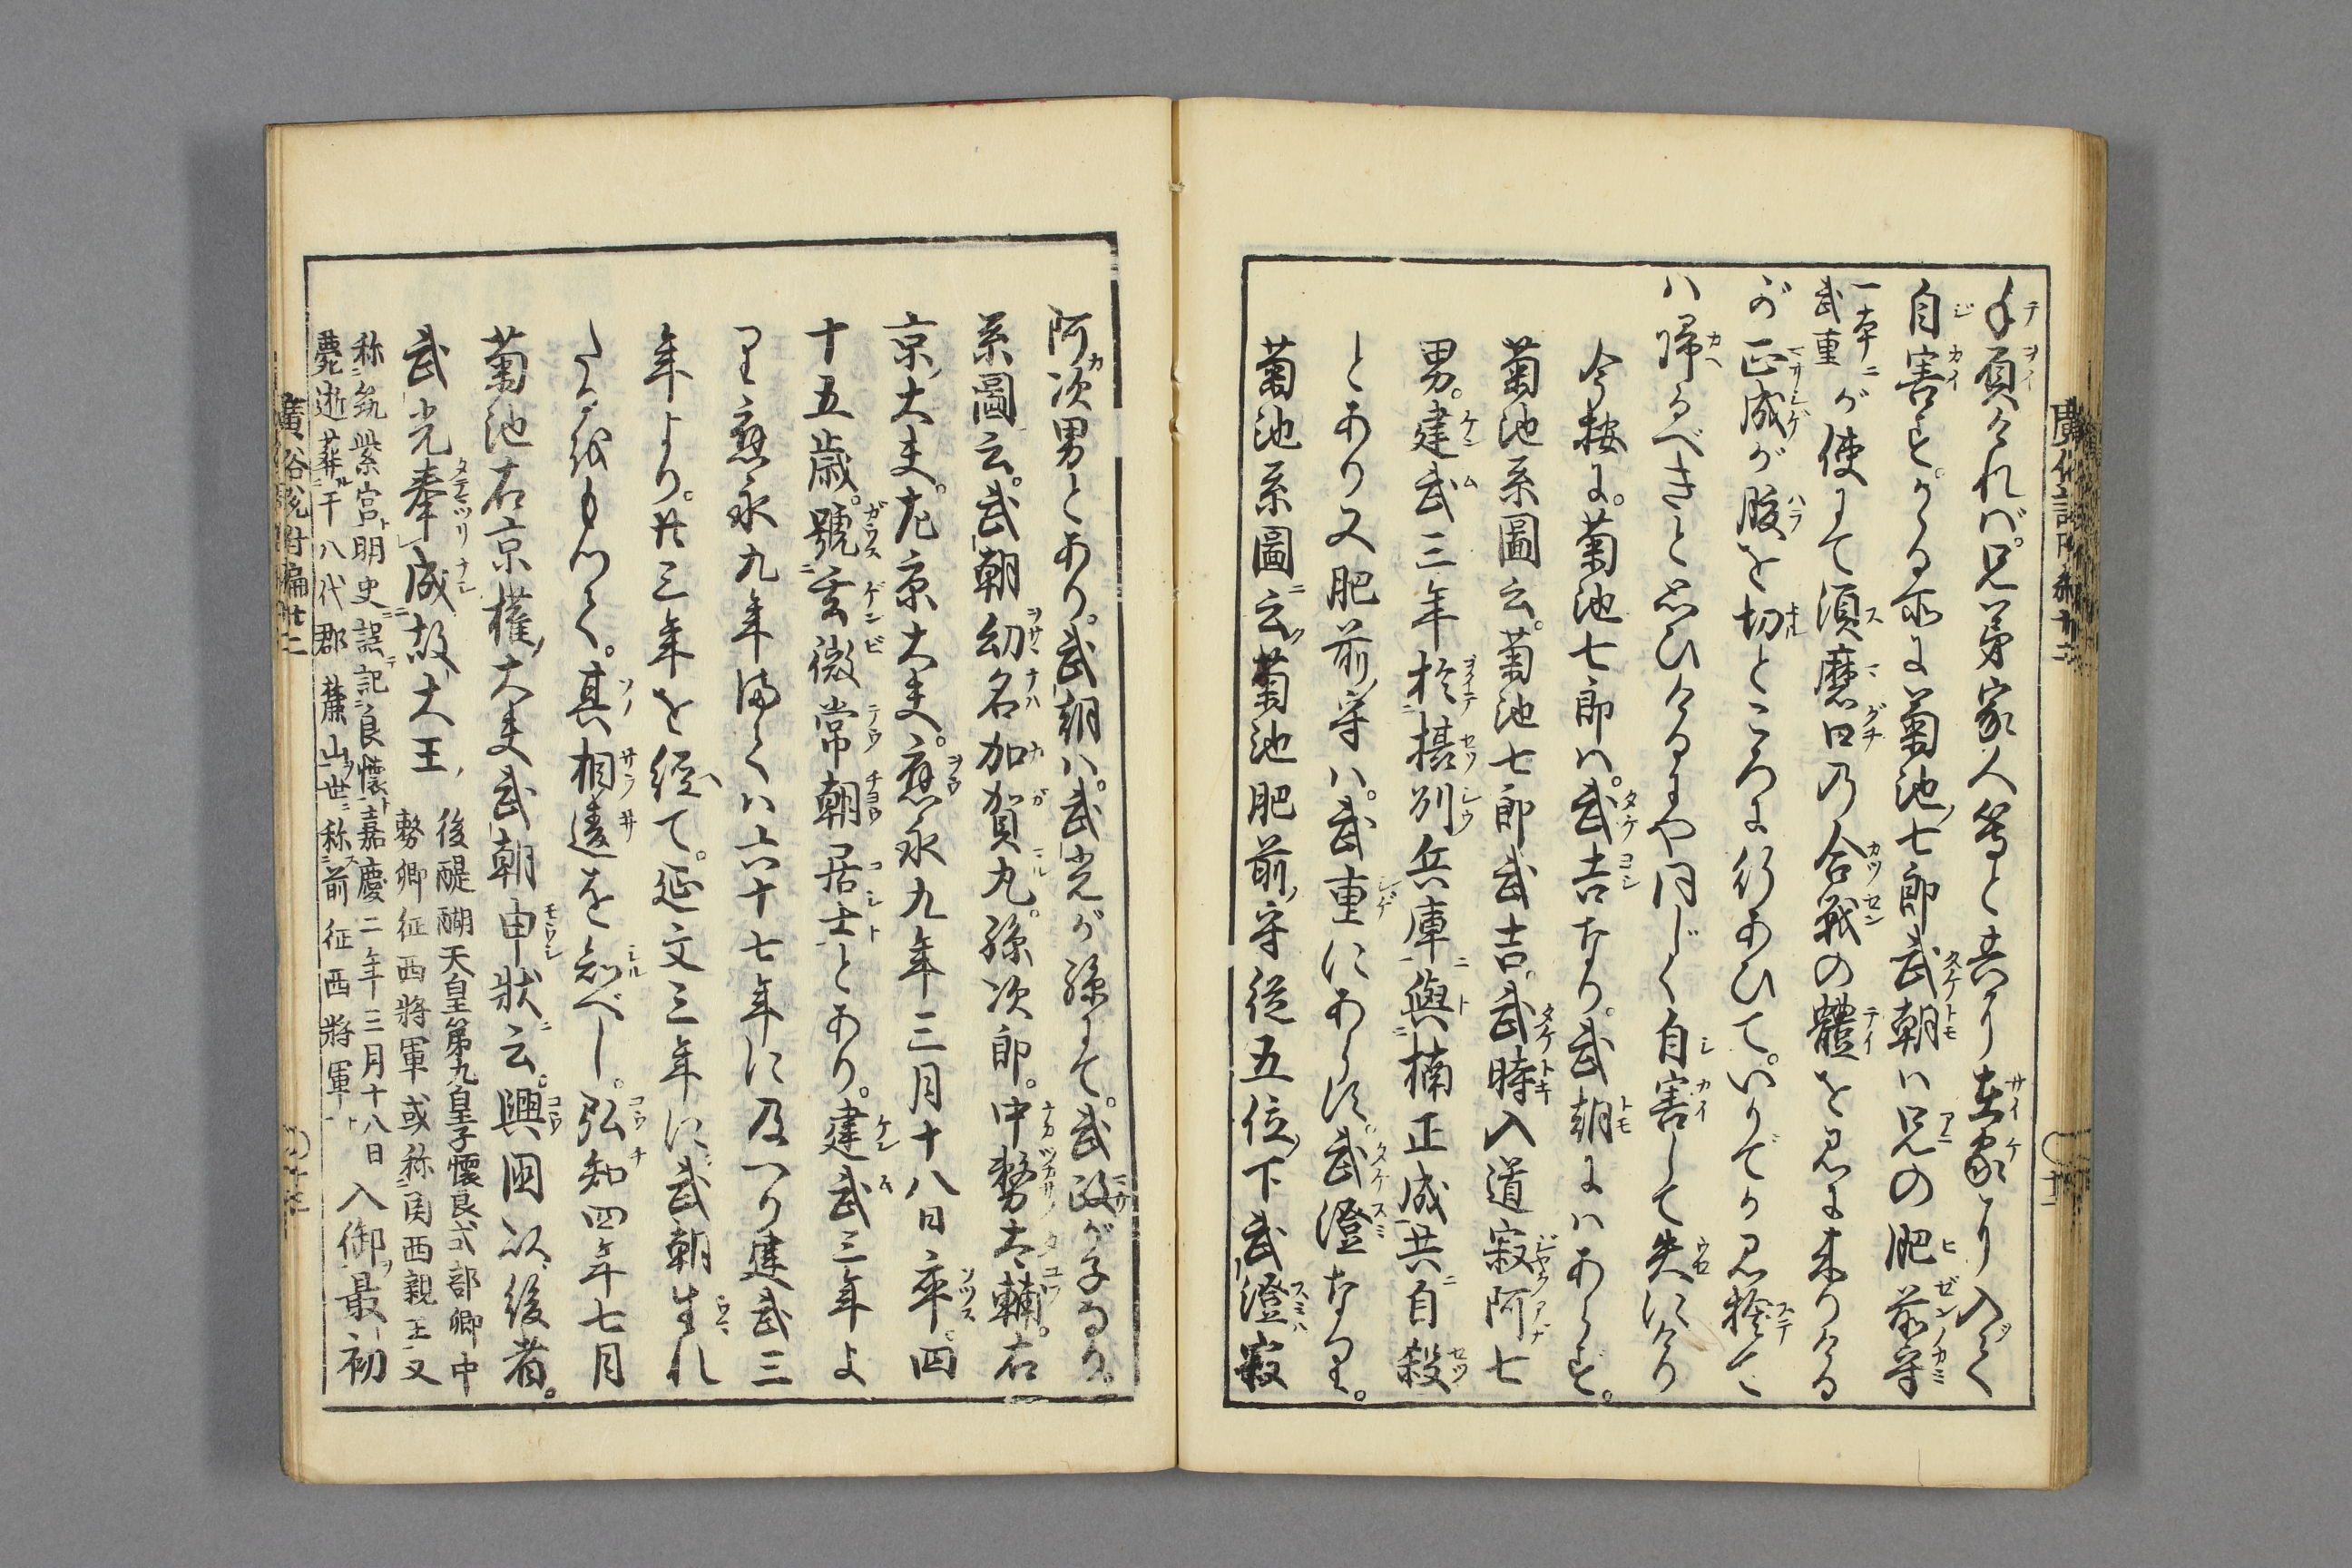 手負ければ。兄弟家人等と共に在家に入て
自害す。かゝる所に菊池七郎武朝ハ兄の肥前守
一本ニ武重が使にて須磨口乃合戦の體を見に来りける
が正成が腹を切ところに行あひて。いかでか見捨て
ハ帰るべきと思ひけるにや同じく自害して失にけり
今按に。菊池七郎ハ。武吉なり。武朝にハあらず。
菊池系圖云。菊池七郎武吉。武時入道寂阿七
男。建武三年於摂州兵庫與楠正成共自殺
とあり又肥前守ハ。武重にあらず。武澄なり。
菊池系圖云菊池肥前守従五位下武澄寂
阿次男とあり。武朝ハ。武光が孫にて。武政が子なり。
系圖云。武朝幼名加賀丸。孫次郎。中務太輔。右
京大夫。左京大夫。應永九年三月十八日卒。四
十五歳。號玄微常朝居士とあり。建武三年よ
り應永九年まてハ六十七年に及べり建武三
年より。廿三年を経て。延文三年に武朝生れ
たるをもつて。其相違を知べし。弘和四年七月
菊池右京權大夫武朝申状云。興国以後者。
武光奉成故大王
後醍醐天皇第九皇子懐良式部卿中
務卿征西将軍或称関西親王又
称筑紫宮明史誤記良懐嘉慶二年三月十八日
薨逝葬于八代郡麓山世称前征西将軍
入御最初